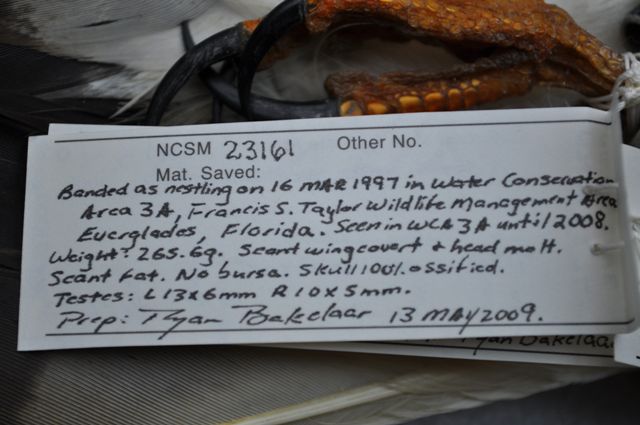 NCSM 23161 Other No.
Mat. Saved:
Banded as nestling on 16 MAR 1997 in Water Conservation
Area 3A, Francis S. Taylor Wildlife Management Area
Everglades, Florida. Seen in WCA 3A until 2008.
Weight: 265.6g. Scant wing covert + head molt.
Scant fat. No bursa. Skull 100% ossified.
Testes: L 13x6mm R 10x5mm.
Prep: Ryan Bakelaar 13 MAY 2009.
Ryan Bakelaar